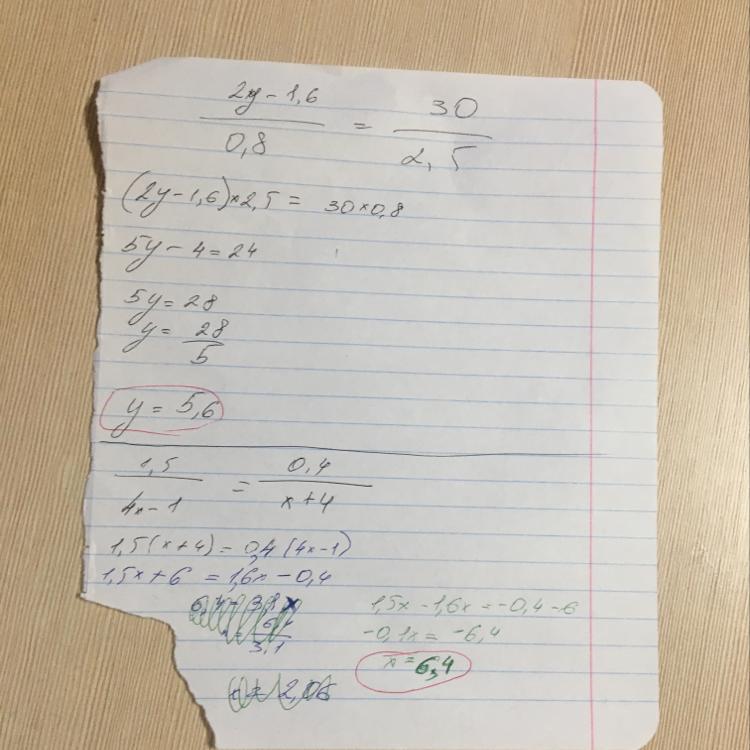 2y-1,6 / 0,8 = 30 / 2,5
(2y-1,6)×2,5 = 30×0,8
5y-4=24
5y=28
y= 28/5
y = 5,6
1,5 / 4x-1 = 0,4 / x+4
1,5(x+4)=0,4(4x-1)
1,5x+6 = 1,6x-0,4
1,5x-1,6x=-0,4-6
-0,1x= -6,4
x=6,4